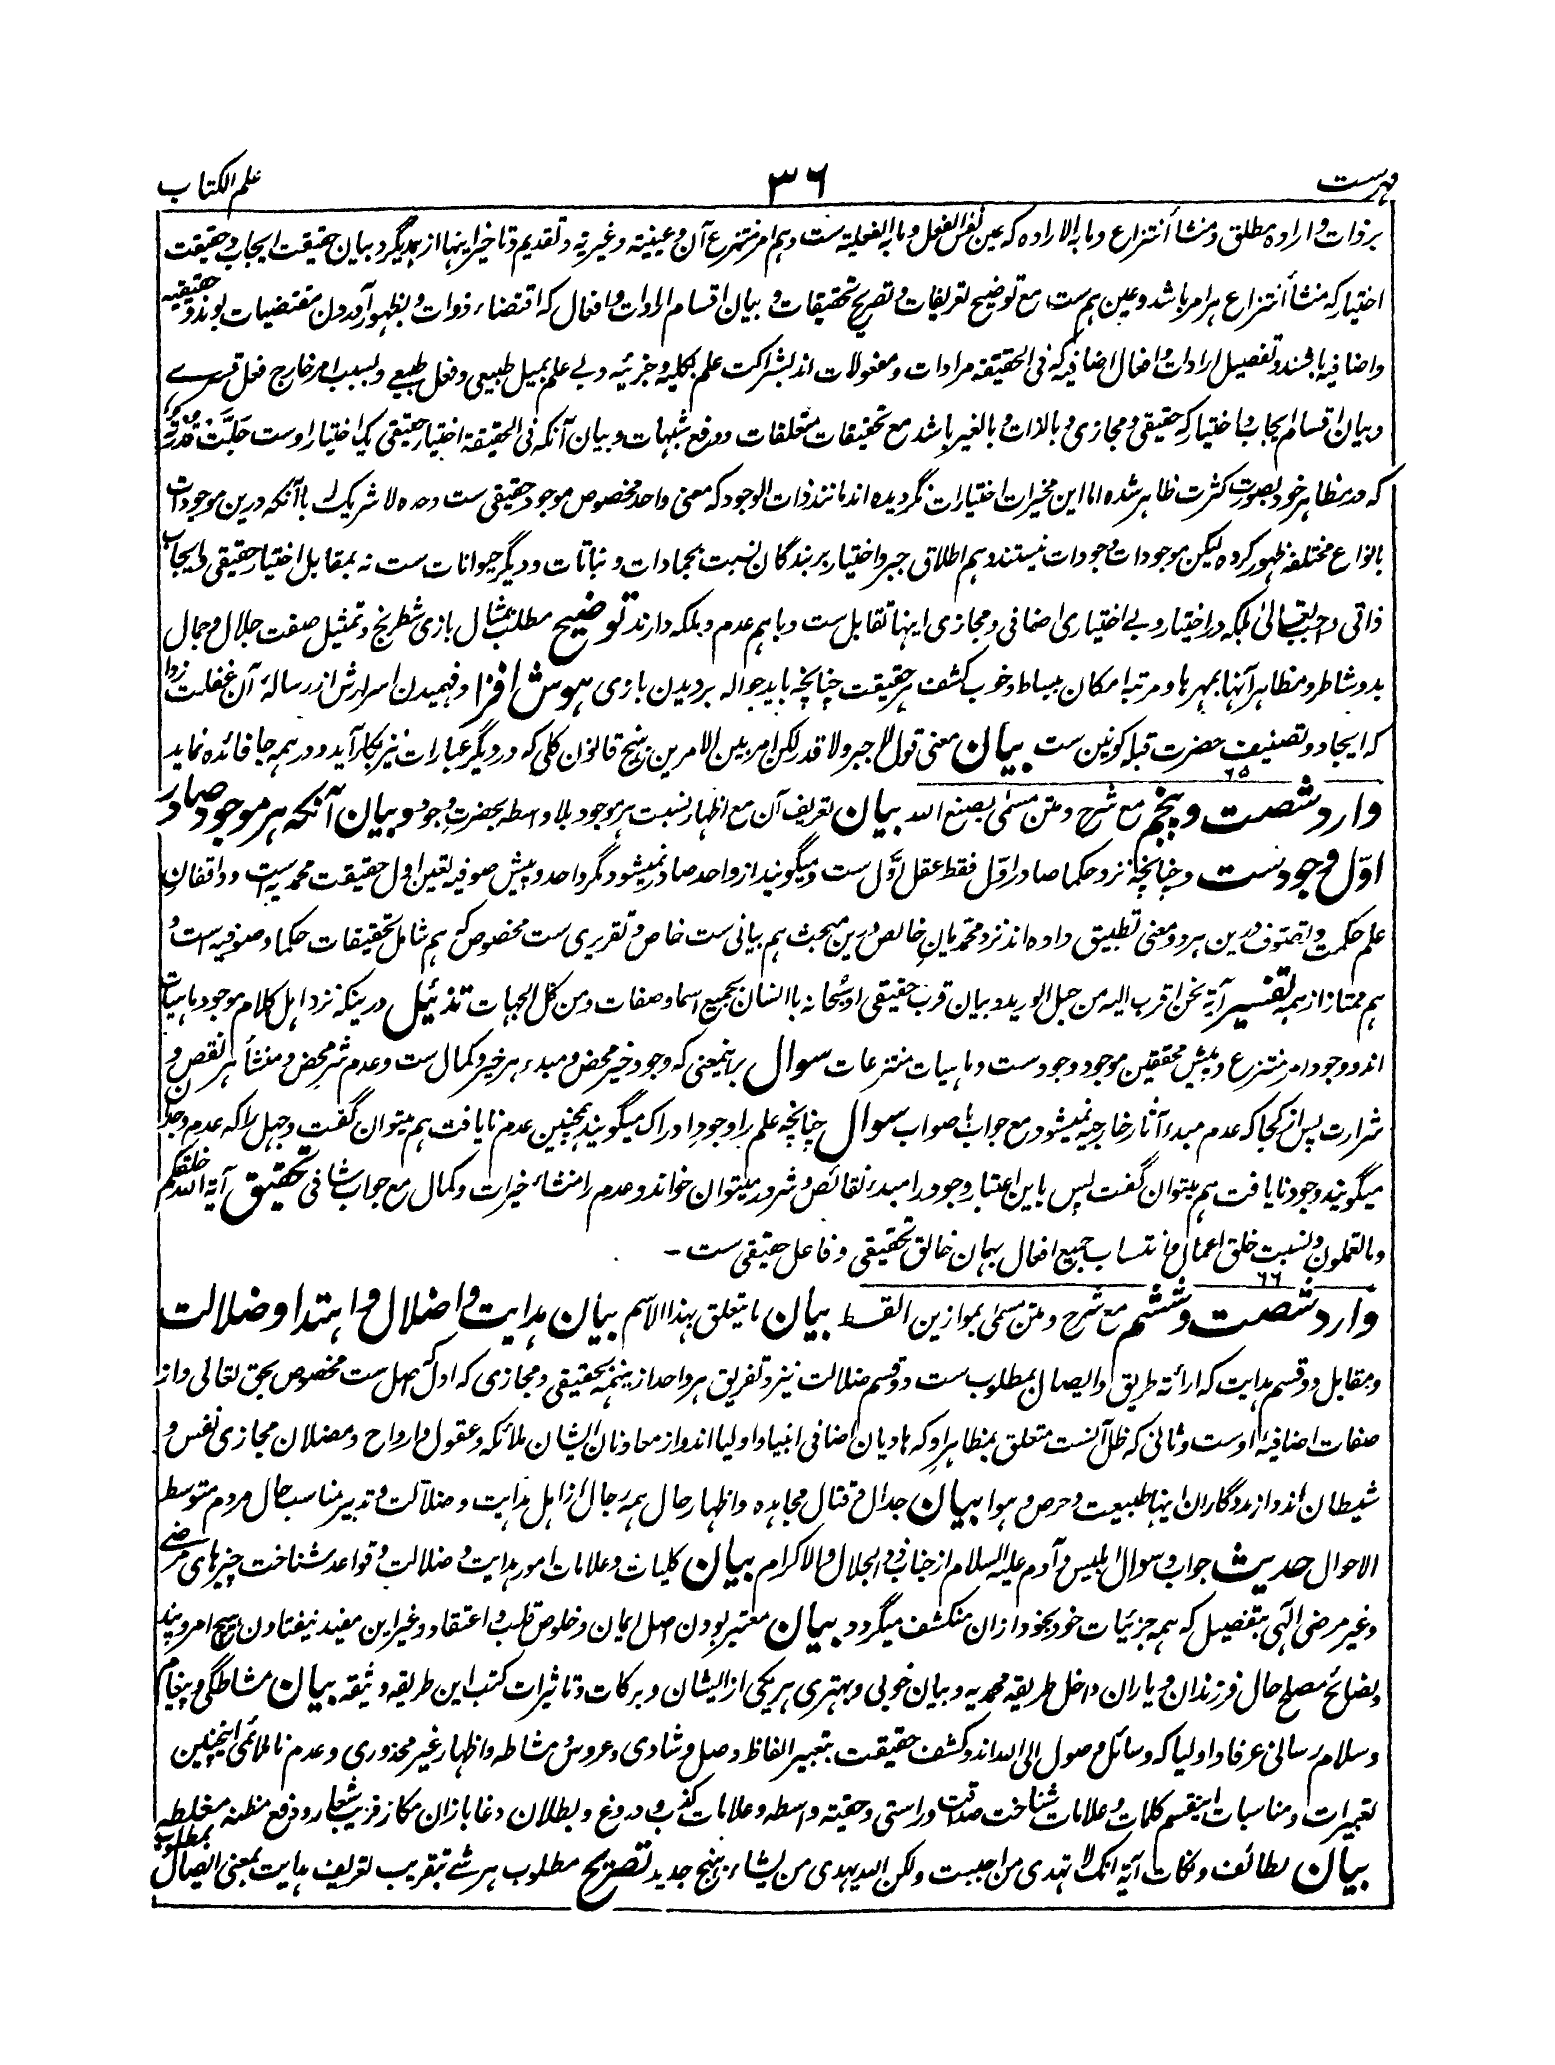 فهرست ۳۶ علم الکتاب
بر ذات و اراده مطلق و منشأ انتزاع و ما به الاراده که عین نفس الفعل و ما به الفعلیة ست و هم امر منتزع آن و عینیة و غیریة و تقدیم و تاخیر اینها از همدیگر و بیان حقیقت ایجاب و حقیقت
اختیار که منشأ انتزاع هر امر باشد و عین هم ست مع توضیح تعریفات و تصریح تحقیقات و بیان اقسام ارادات و افعال که اقتضاء ذوات و بظهور آوردن مقتضیات بوند و حقیقیه
و اضافیه باشند و تفصیل ارادات و افعال اضافیه که فی الحقیقة مرادات و مفعولات اند بشراکت علم کلیه و جزئیه و بے علم بمیل طبیعی و فعل طبیعے و بسبب امر خارج فعل قسرے
و بیان اقسام ایجاب و اختیار که حقیقی و مجازی و بالذات و بالغیر باشد مع تحقیقات متعلقات و رفع شبهات و بیان آنکه فی الحقیقة اختیار حقیقی یک اختیار اوست جلّت قدرته
که در مظاهر خود بصورت کثرت ظاهر شده اما این مخیرات اختیارات نگردیده اند مانند ذات الوجود که معنی واحد مخصوص موجود حقیقی ست وحده لا شریک له با آنکه درین موجودات
بانواع مختلفه ظهور کرده لیکن موجودات وجودات نیستند و هم اطلاق جبر و اختیار بر بندگان نسبت بجمادات و نباتات و دیگر حیوانات ست نه بمقابل اختیار حقیقی و ایجاب
ذاتی واجب تعالیٰ بلکه در اختیار و بے اختیاری اضافی و مجازی اینها تقابل ست و با هم عدم و ملکه دارند توضیح مطلب بمثال بازی شطرنج و تمثیل صفت جلال و جمال
بدو شاطر و مظاهر آنها بمهرها و مرتبه امکان ببساط و خوب کشف هر حقیقت چنانچه باید حواله بر دیدن بازی هوش افزا و فهمیدن اسرارش از رسالهٔ آن غفلت زدا
که ایجاد و تصنیف حضرت قبله کونین ست بیان معنی قول لا جبر ولا قدر لکن امر بین الامرین بنهج قانون کلی که در دیگر عبارات نیز بکار آید و در همه جا فائده نماید
۶۵
وارد شصت و پنجم مع شرح و متن مسمّٰی بصنع الله بیان تعریف آن مع اظهار نسبت هر موجود بلا واسطه بحضرت وجود و بیان آنکه هر موجود صادر
اوّل وجودست و چنانچه نزد حکما صادر اوّل فقط عقل اوّل ست و میگویند از واحد صادر نمیشود مگر واحد و پیش صوفیه تعین اول حقیقت محمدیه است و واقفان
علم حکمت و تصوف درین هر دو معنی تطبیق داده اند نزد محمدیان خالص درین مبحث هم بیانی ست خاص و تقریری ست مخصوص که هم شامل تحقیقات حکما و صوفیه است و
هم ممتاز از همه تفسیر آیهٔ نحن اقرب الیه من حبل الورید و بیان قرب حقیقی او سبحانه با انسان بجمیع اسما و صفات و من کل الجهات تذئیل درینکه نزد اهل کلام موجود ماهیات
اند و وجود امر منتزع و پیش محققین موجود وجود ست و ماهیات منتزعات سوال بر اینمعنی که وجود خیر محض و مبدء هر خیر و کمال ست و عدم شر محض و منشأ هر نقص و
شرارت پس از کجا که عدم مبدء آثار خارجیه نمیشود مع جواب با صواب سوال چنانچه علم را وجود ادراک میگویند همچنین عدم نایافت هم میتوان گفت و جهل را که عدم وجدان
میگویند وجود نایافت هم میتوان گفت پس باین اعتبار وجود را مبدء نقائص و شرور میتوان خواند و عدم را منشاء خیرات و کمال مع جواب شافی تحقیق آیهٔ الله خلقکم
وما تعملون و نسبت خلق اعمال و انتساب جمیع افعال بهمان خالق تحقیقی و فاعل حقیقی ست ۔
۶۶
وارد شصت و ششم مع شرح و متن مسمّٰی بموازین القسط بیان ما یتعلق بهذا الاسم بیان هدایت و اضلال و اهتدا و ضلالت
و مقابل دو قسم هدایت که ارائة طریق و ایصال بمطلوب ست دو قسم ضلالت نیز و تفریق هر واحد ازینهمه بحقیقی و مجازی که اول که اصل ست مخصوص بحق تعالی و از
صفات اضافیهٔ اوست و ثانی که ظل آنست متعلق بمظاهر او که هادیان اضافی انبیا و اولیا اند و از معاونان ایشان ملائکه و عقول و ارواح و مضلان مجازی نفس و
شیطان اند و از مددگاران اینها طبیعت و حرص و هوا بیان جدال و قتال مجاهده و اظهار حال همه رجال از اهل هدایت و ضلالت و تدبیر مناسب حال مردم متوسط
الاحوال حدیث جواب و سوال ابلیس و آدم علیه السلام از جناب ذو الجلال والاکرام بیان کلیات و علامات امور هدایت و ضلالت و قواعد شناخت چیزهای مرضی
و غیر مرضی الٰهی بتفصیل که همه جزئیات خود بخود از ان منکشف میگردد بیان معتبر بودن اصل ایمان و خلوص قلب و اعتقاد و غیر این مفید نیفتادن هیچ امر و پند
و نصائح مصلح حال فرزندان و یاران داخل طریقه محمدیه و بیان خوبی و بهتری هر یکی از ایشان و برکات و تاثیرات کتب این طریقه وثیقه بیان مشاطگی و پیغام
و سلام رسانی عرفا و اولیا که وسائل وصول الی الله اند و کشف حقیقت بتعبیر الفاظ وصل و شادی و عروس و مشاطه و اظهار غیر محذوری و عدم ناملائمی اینچنین
تعبیرات و مناسبات اینقسم کلمات و علامات شناخت صداقت و راستی و حقیة واسطه و علامات کذب و دروغ و بطلان دغابازان مکار فریب شعار و دفع مظنه مغلطه
بیان لطائف و نکات آیهٔ انک لا تهدی من احببت ولکن الله یهدی من یشاء بنهج جدید تصریح مطلوب هر شے بتقریب تعریف هدایت بمعنی ایصال بمطلوب